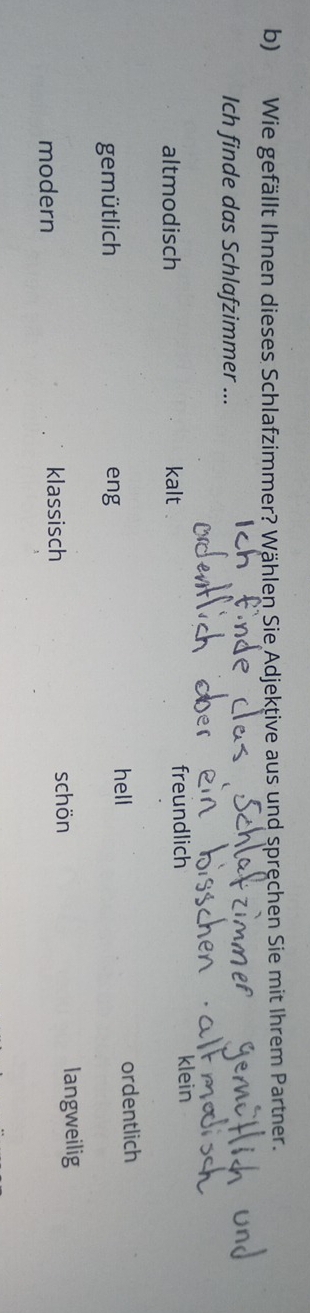 b) Wie gefällt Ihnen dieses Schlafzimmer? Wählen Sie Adjektive aus und sprechen Sie mit Ihrem Partner.
Ich finde das Schlafzimmer ...
Ich finde das Schlafzimmer gemütlich und
ordentlich aber ein bisschen altmodisch
altmodisch kalt freundlich klein
gemütlich eng hell ordentlich
modern klassisch schön langweilig